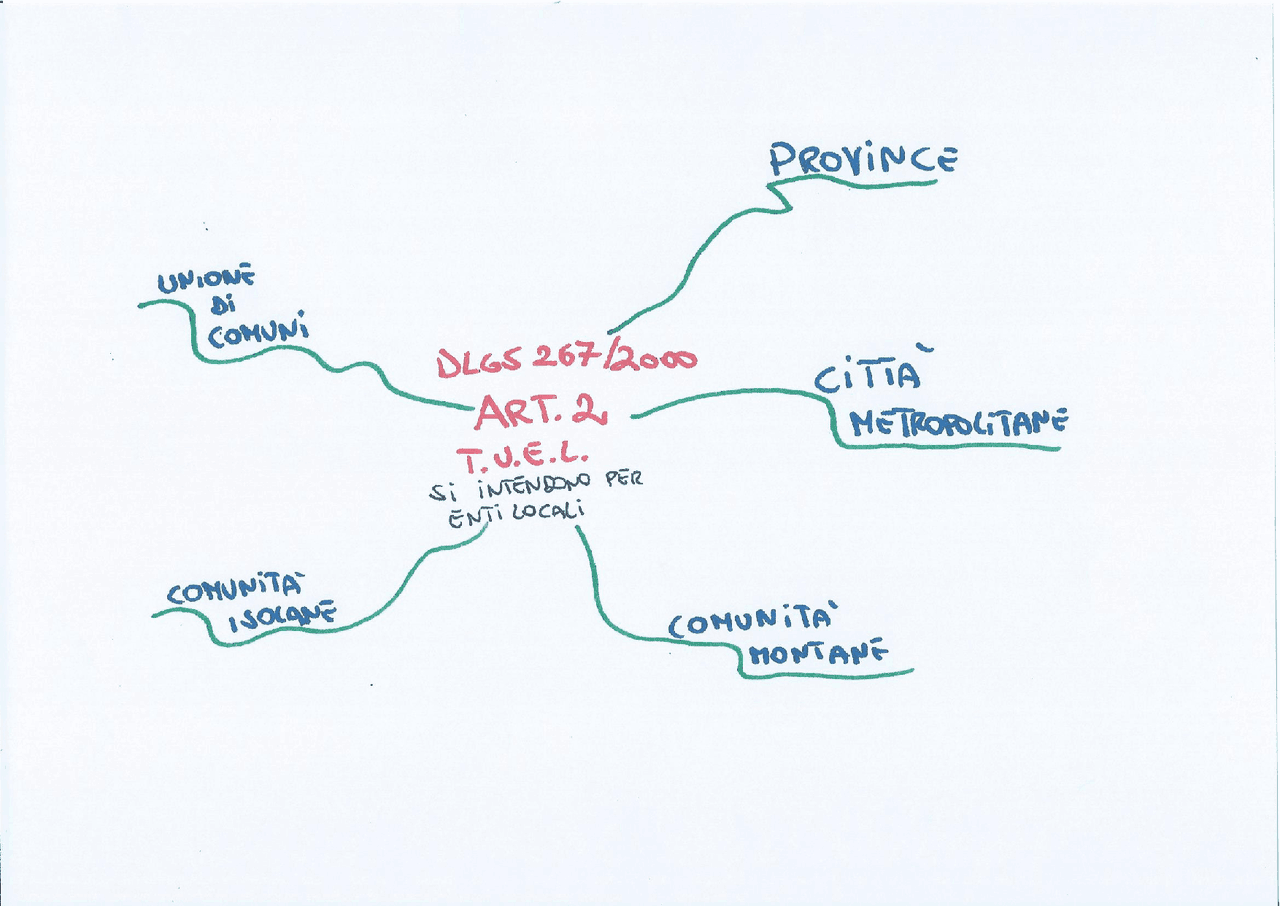 PROVINCE
UNIONE
DI
COMUNI
DLGS 267/2000
ART. 2
T.U.E.L.
SI INTENDONO PER
ENTI LOCALI
CITTÀ
METROPOLITANE
COMUNITÀ
ISOLANE
COMUNITÀ
MONTANE